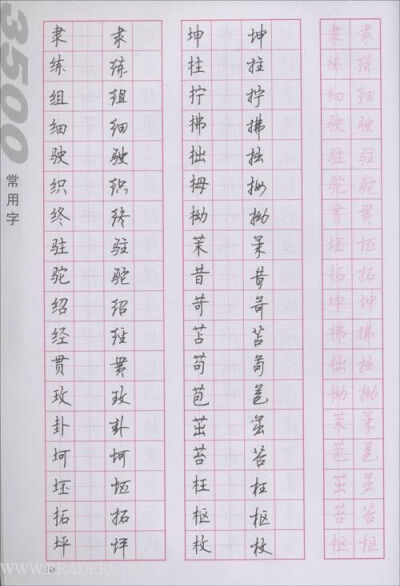 3500
常用字
隶 隶
练 练
组 组
细 细
驶 驶
织 织
终 终
驻 驻
驼 驼
绍 绍
经 经
贯 贯
玫 玫
卦 卦
坷 坷
坯 坯
拓 拓
坪 坪
坤 坤
拄 拄
拧 拧
拂 拂
拙 拙
拇 拇
拗 拗
茉 茉
昔 昔
苛 苛
苫 苫
苟 苟
苞 苞
茁 茁
苔 苔
枉 枉
枢 枢
枚 枚
隶 隶
练 练
细 细
驶 驶
驻 驻
驼 驼
贯 贯
坯 坯
拓 拓
坤 坤
拂 拂
拙 拙
拗 拗
茉 茉
苞 苞
茁 茁
苔 苔
枢 枢